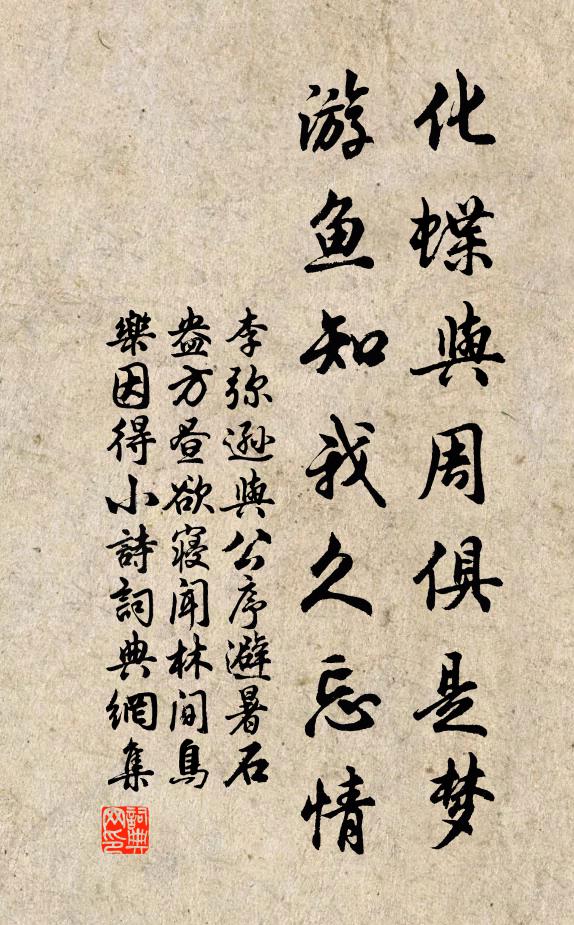 化蝶與周俱是梦
游鱼知我久忘情
李弥逊與公序避暑石
盎方昼欲寝闻林间鳥
樂因得小詩詞典網集
詞典
网印